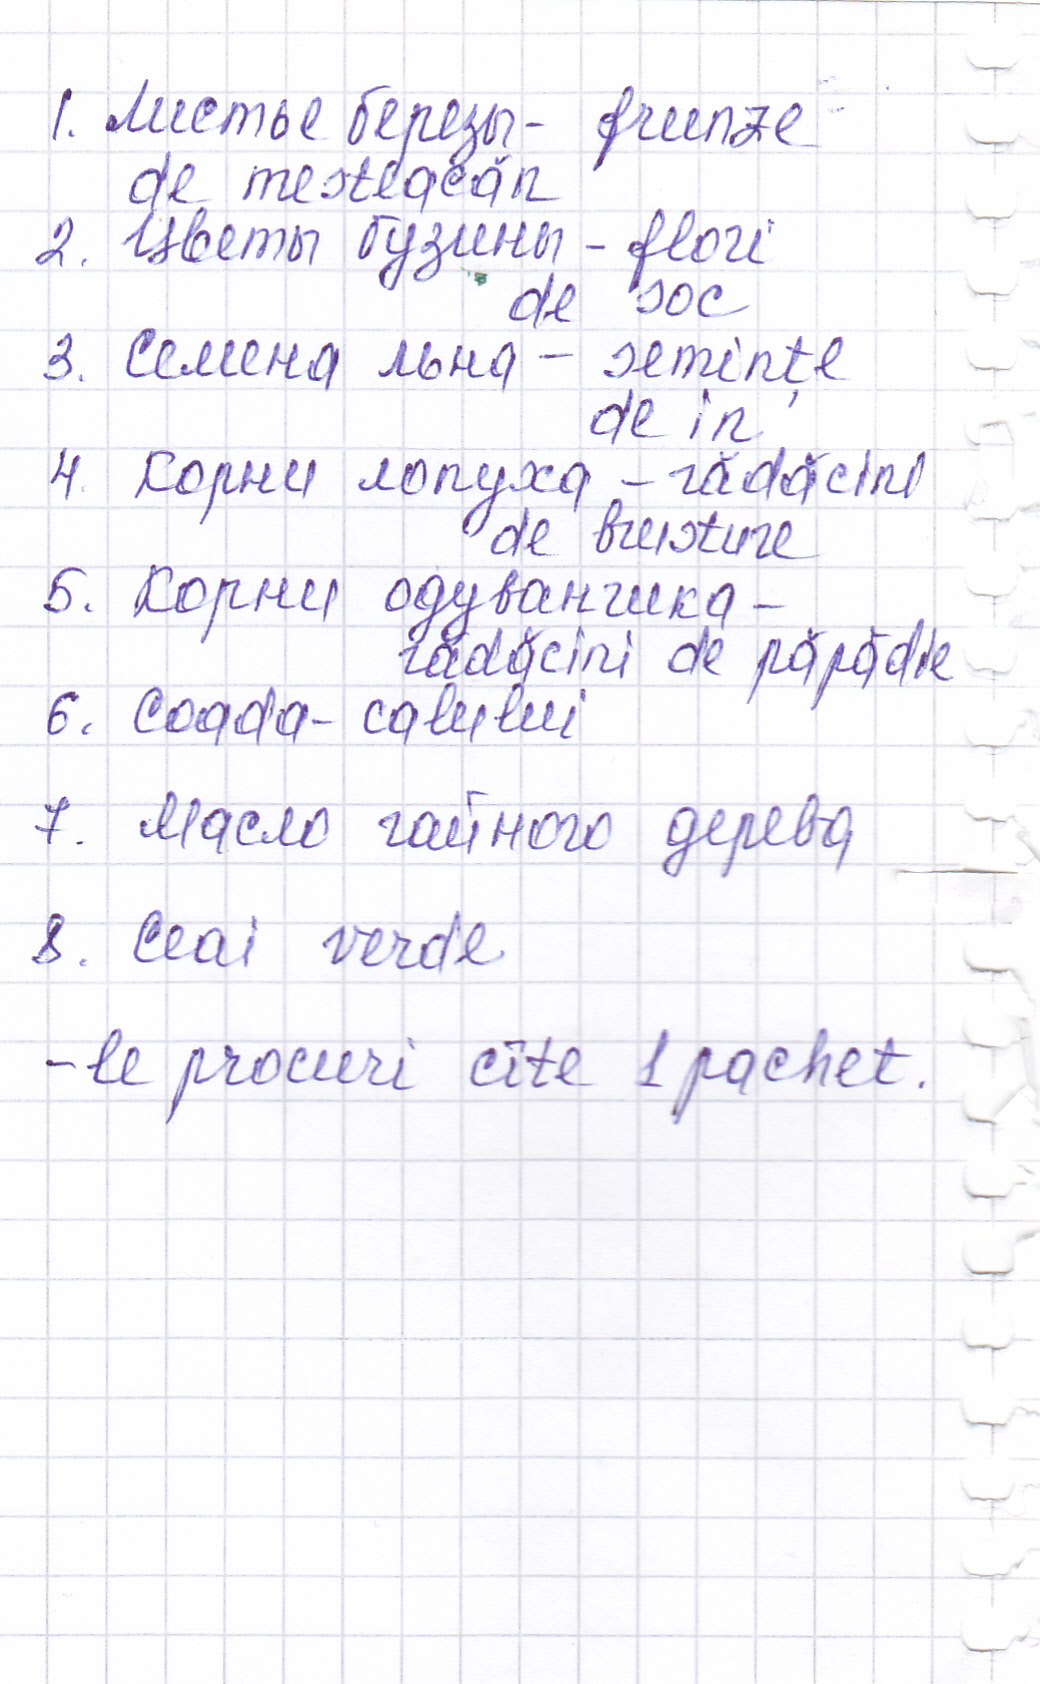 1. Листье березы - frunze
de mesteacăn
2. Цветы бузины - flori
de soc
3. Семена льна - semințe
de in
4. Корни лопуха - rădăcini
de brusture
5. Корни одуванчика -
rădăcini de păpădie
6. Coada - calului
7. Масло чайного дерева
8. Ceai verde
- le procuri cîte 1 pachet.